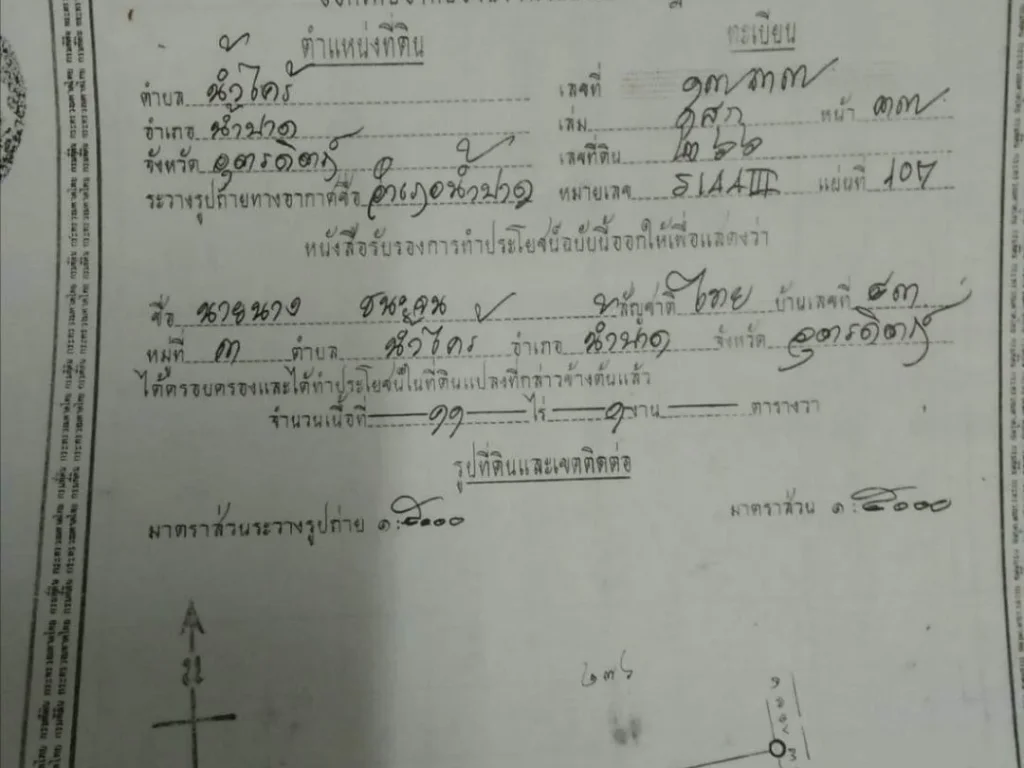 ตำแหน่งที่ดิน ทะเบียน
ตำบล น้ำไคร้ เลขที่
อำเภอ น้ำปาด เล่ม หน้า ๓๗
จังหวัด อุตรดิตถ์ เลขที่ดิน ๒๖๖
ระวางรูปถ่ายทางอากาศชื่อ อำเภอน้ำปาด หมายเลข 5144III แผ่นที่ 107
หนังสือรับรองการทำประโยชน์ฉบับนี้ออกให้เพื่อแสดงว่า
ชื่อ นายนาง สัญชาติ ไทย บ้านเลขที่ ๘๓
หมู่ที่ ๓ ตำบล น้ำไคร้ อำเภอ น้ำปาด จังหวัด อุตรดิตถ์
ได้ครอบครองและได้ทำประโยชน์ในที่ดินแปลงที่กล่าวข้างต้นแล้ว
จำนวนเนื้อที่ ๑๑ ไร่ ๑ งาน ตารางวา
รูปที่ดินและเขตติดต่อ
มาตราส่วนระวางรูปถ่าย ๑:๕๐๐๐ มาตราส่วน ๑:๕๐๐๐
น
๒๓๖